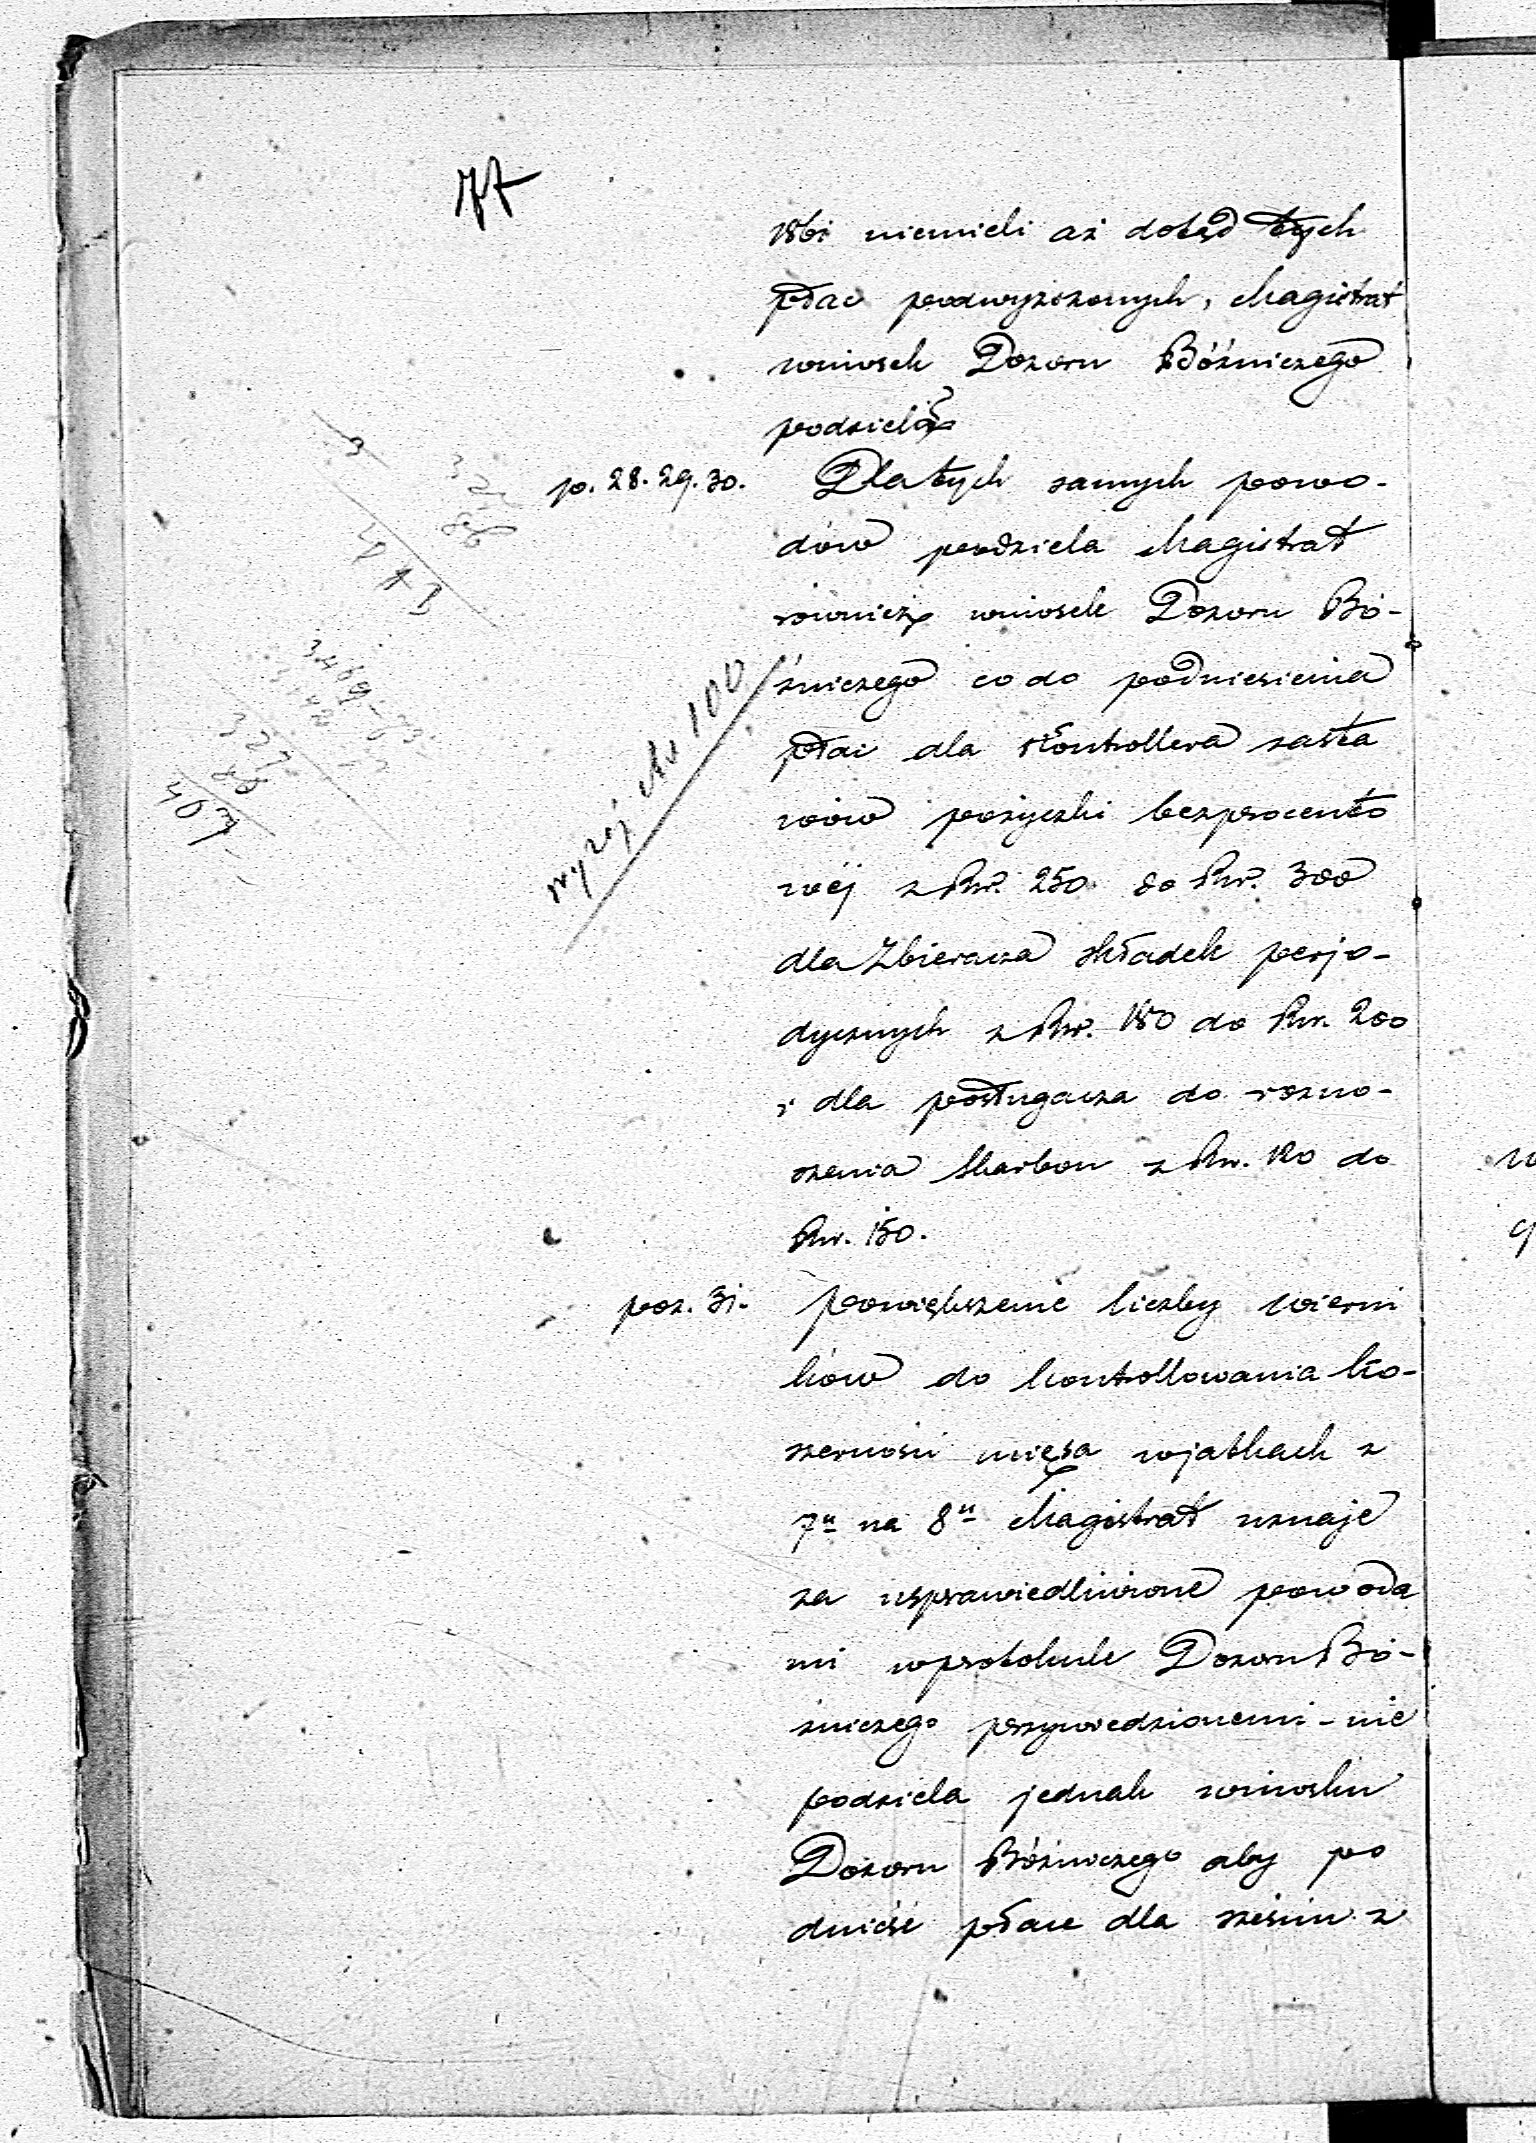 77
1861 niemieli aż dotąd tych
płac podwyższonych, Magistrat
wniosek Dozoru Bóżniczego
podziela
p. 28. 29. 30. Dla tych samych powo-
dów podziela Magistrat
również wniosek Dozoru Bó-
żniczego co do podniesienia
płac dla Kontrollera zasta
wów pożyczki bezprocento
wéj z Rsr. 250 do Rsr. 300
dla Zbieracza składek perjo-
dycznych z Rsr. 180 do Rsr. 200
i dla posługacza do rozno-
szenia skarbon z Rsr. 120 do
Rsr. 150.
poz. 31. powiększenie liczby wierni
ków do kontrollowania ko-
szerności mięsa wjatkach z
7u na 8u Magistrat uznaje
za usprawiedliwione powoda
mi wprotokule Dozoru Bó-
żniczego przywiedzionemi - nie
podziela jednak wniosku
Dozoru Bóżniczego aby po
dnieść płace dla sześciu z
wyżej 100
327
88
407